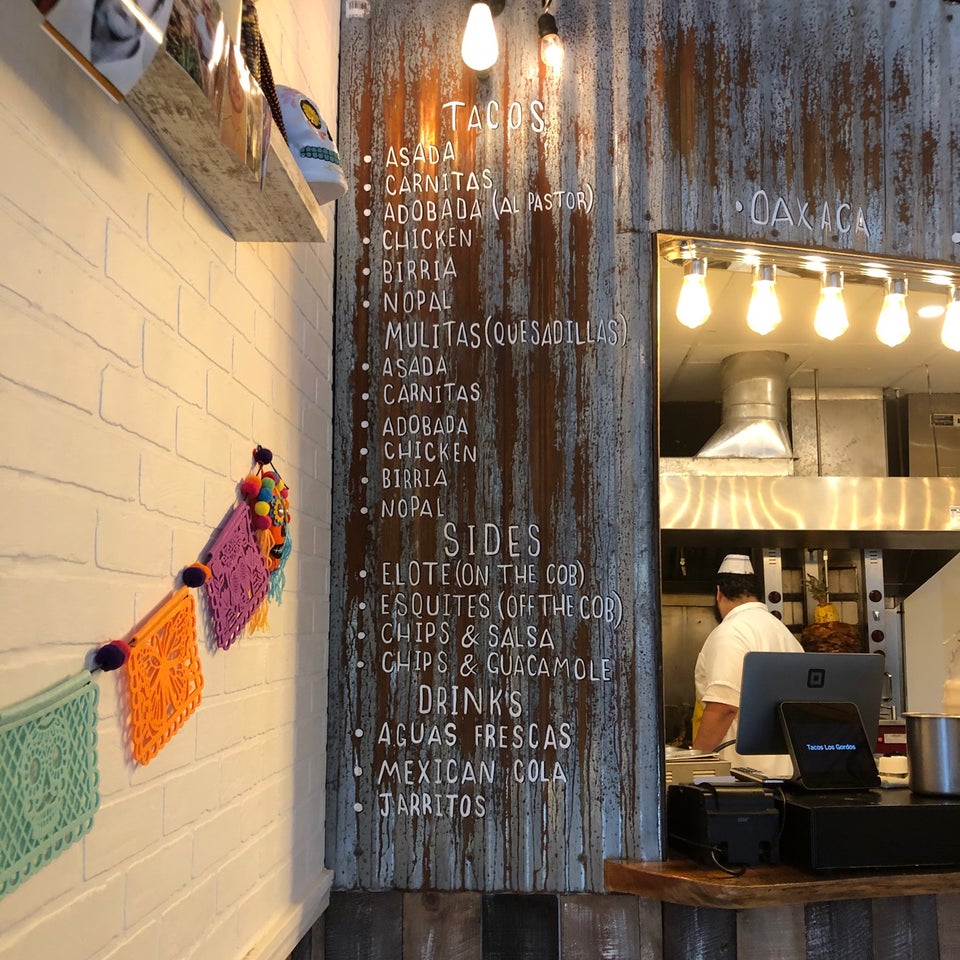 TACOS
• ASADA
• CARNITAS
• ADOBADA (AL PASTOR)
• CHICKEN
• BIRRIA
• NOPAL
MULITAS (QUESADILLAS)
• ASADA
• CARNITAS
• ADOBADA
• CHICKEN
• BIRRIA
• NOPAL
SIDES
• ELOTE (ON THE COB)
• ESQUITES (OFF THE COB)
• CHIPS & SALSA
• CHIPS & GUACAMOLE
DRINK'S
• AGUAS FRESCAS
• MEXICAN COLA
• JARRITOS
• OAXACA
Tacos Los Gordos